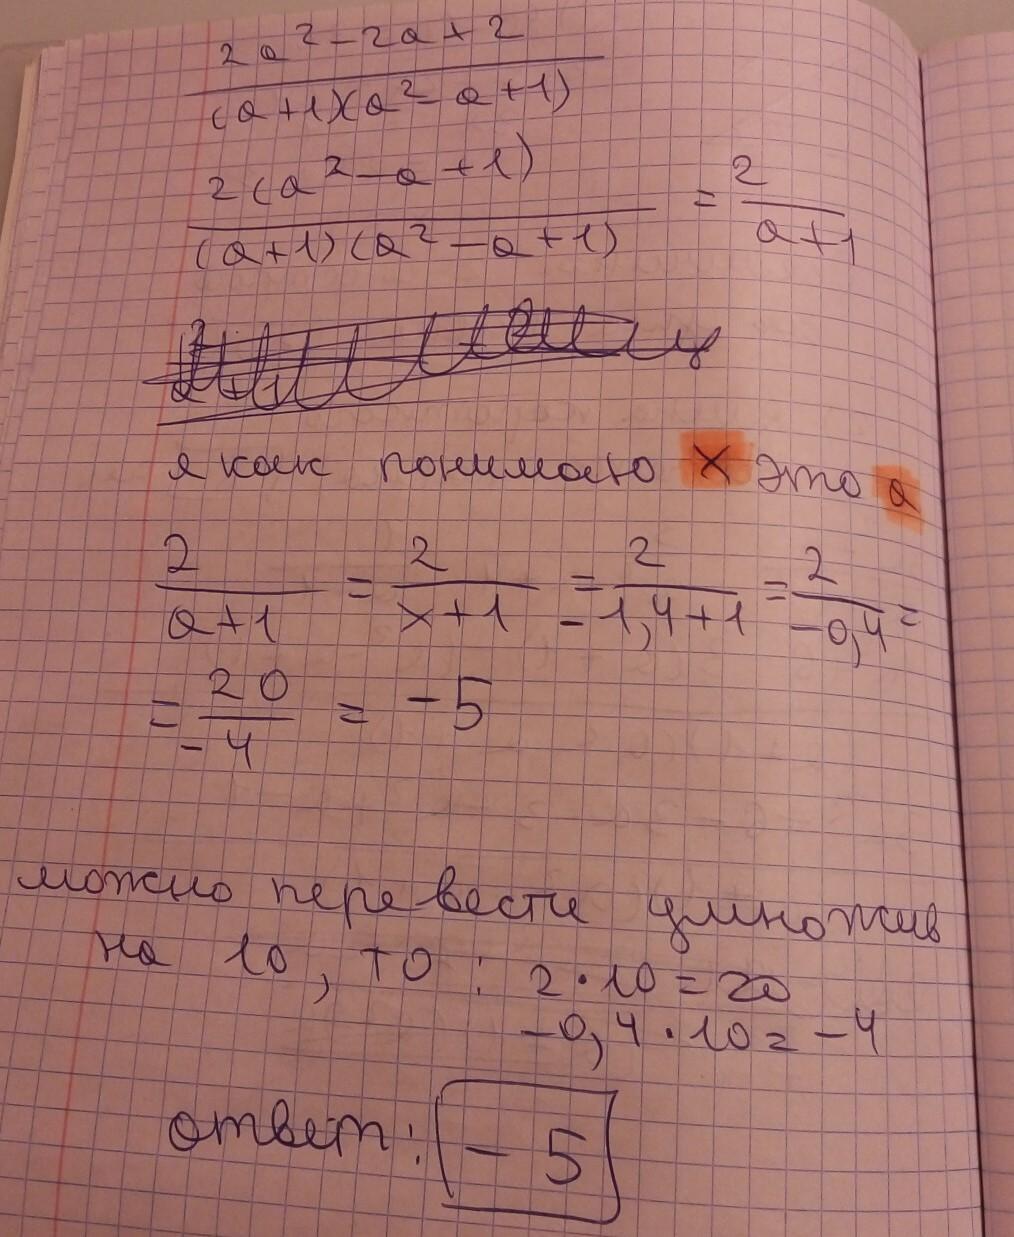 2a² - 2a + 2
(a+1)(a² - a + 1)
2(a² - a + 1)
(a+1)(a² - a + 1)
= 2
a+1
я как понимаю х это а
2 = 2 = 2 = 2 =
a+1 x+1 -1,4+1 -0,4
= 20 = -5
-4
можно перевести умножив
на 10, то: 2·10=20
-0,4·10=-4
ответ: -5